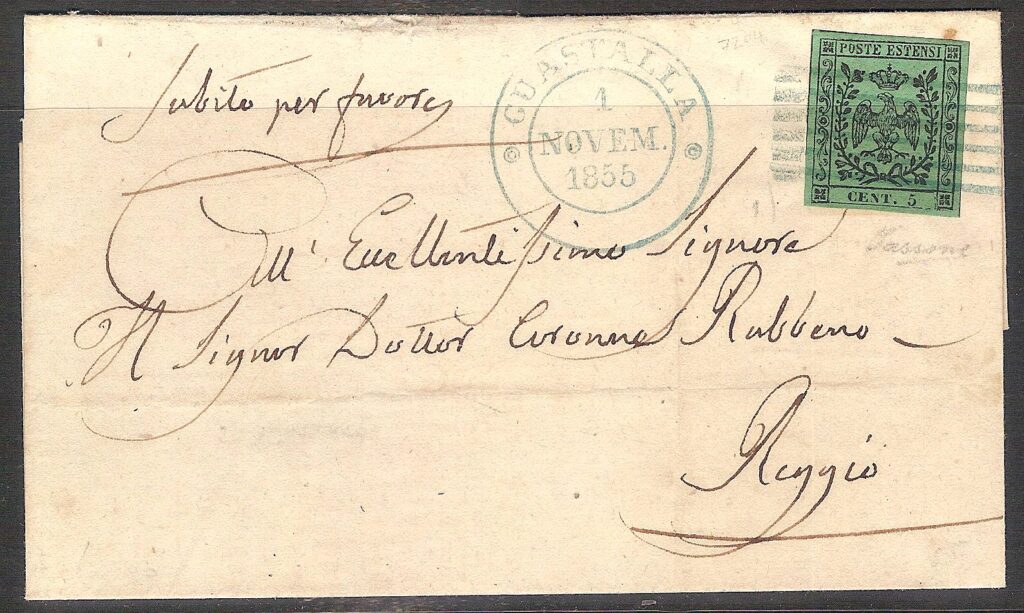 Subito per favore
GUASTALLA
1
NOVEM.
1855
POSTE ESTENSI
CENT. 5
All' Eccellentissimo Signore
Il Signor Dottor Coronna Rabbeno
Reggio